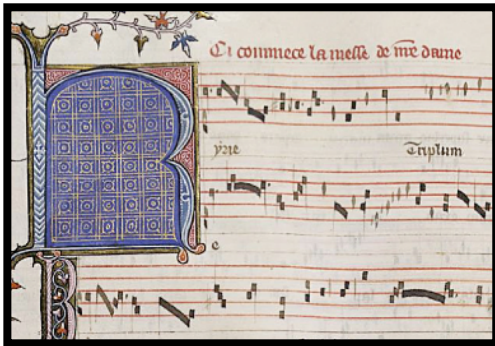 Ci commece la messe de nre dame
K yrie Triplum
e